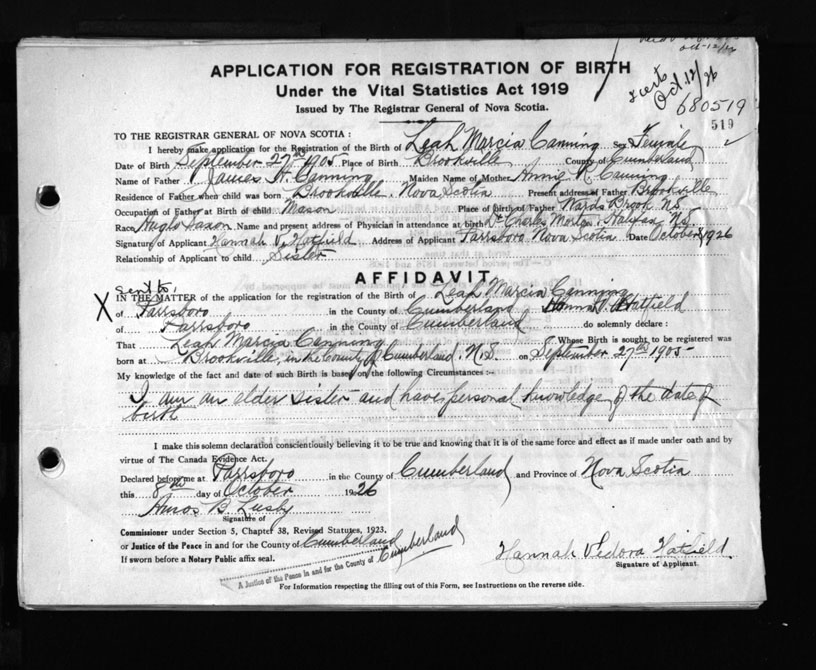 Oct-12/26
APPLICATION FOR REGISTRATION OF BIRTH
Under the Vital Statistics Act 1919
Issued by The Registrar General of Nova Scotia.
Oct 12/26
680519
519
TO THE REGISTRAR GENERAL OF NOVA SCOTIA :
I hereby make application for the Registration of the Birth of Leah Marcia Canning Sex Female
Date of Birth September 27th 1905 Place of Birth Brookville County of Cumberland
Name of Father James W. Canning Maiden Name of Mother Annie R. Canning
Residence of Father when child was born Brookville Nova Scotia Present address of Father Brookville
Occupation of Father at Birth of child Mason Place of birth of Father Wards Brook N.S.
Race Anglo Saxon Name and present address of Physician in attendance at birth Dr Charles Morton, Halifax N.S.
Signature of Applicant Hannah V. Hatfield Address of Applicant Parrsboro Nova Scotia Date October 8 1926
Relationship of Applicant to child Sister
AFFIDAVIT
sent to.
X
IN THE MATTER of the application for the registration of the Birth of Leah Marcia Canning
of Parrsboro in the County of Cumberland Hatfield
of Parrsboro in the County of Cumberland do solemnly declare :
That Leah Marcia Canning Whose Birth is sought to be registered was
born at Brookville, in the County of Cumberland. N.S. on September 27th 1905
My knowledge of the fact and date of such Birth is based on the following Circumstances :-
I am an elder sister and have personal knowledge of the date of
birth
I make this solemn declaration conscientiously believing it to be true and knowing that it is of the same force and effect as if made under oath and by
virtue of The Canada Evidence Act.
Declared before me at Parrsboro in the County of Cumberland and Province of Nova Scotia
this 8th day of October 1926
Amos B. Lusby
Signature of
Commissioner under Section 5, Chapter 38, Revised Statutes, 1923.
or Justice of the Peace in and for the County of Cumberland
If sworn before a Notary Public affix seal.
A Justice of the Peace in and for the County of Cumberland
Hannah Vedora Hatfield.
Signature of Applicant.
For Information respecting the filling out of this Form, see Instructions on the reverse side.